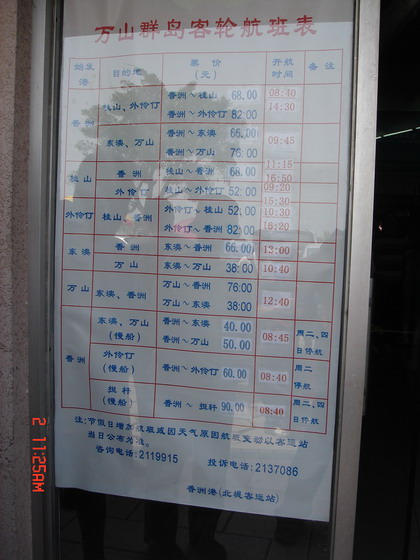 万山群岛客轮航班表
始发港 目的地 票价(元) 开航时间 备注
香洲 桂山、外伶仃 香洲～桂山 68.00 08:40
香洲～外伶仃 82.00 14:30
东澳、万山 香洲～东澳 66.00 09:45
香洲～万山 76.00
桂山 香洲 桂山～香洲 68.00 11:15
16:50
外伶仃 桂山～外伶仃 52.00 09:20
15:30
外伶仃 桂山、香洲 外伶仃～桂山 52.00 10:30
外伶仃～香洲 82.00 16:20
东澳 香洲 东澳～香洲 66.00 13:00
万山 东澳～万山 38.00 10:40
万山 东澳、香洲 万山～香洲 76.00 12:40
万山～东澳 38.00
香洲 东澳、万山(慢船) 香洲～东澳 40.00 08:45 周二、四日停航
香洲～万山 50.00
外伶仃(慢船) 香洲～外伶仃 60.00 08:40 周二停航
担杆(慢船) 香洲～担杆 90.00 08:40 周二、四日停航
注:节假日增加航班或因天气原因航班变动以客运站
当日公布为准。
咨询电话:2119915 投诉电话:2137086
香洲港(北堤客运站)
2 11:25AM